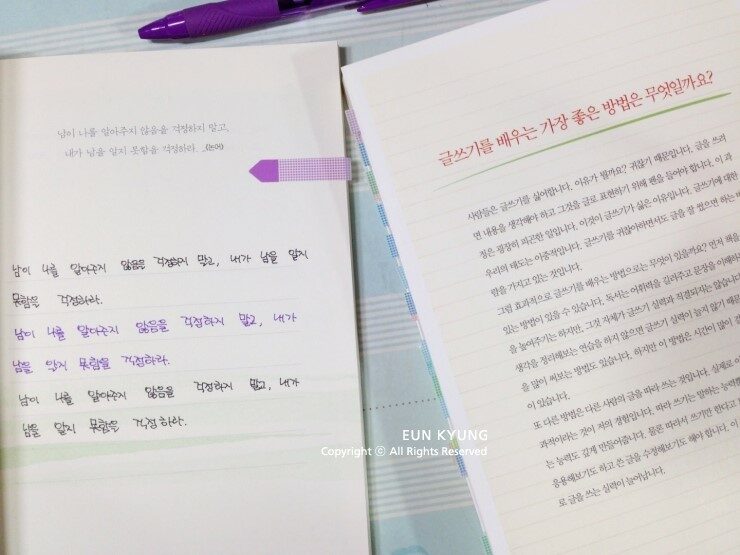 남이 나를 알아주지 않음을 걱정하지 말고,
내가 남을 알지 못함을 걱정하라. _《논어》
남이 나를 알아주지 않음을 걱정하지 말고, 내가 남을 알지
못함을 걱정하라.
남이 나를 알아주지 않음을 걱정하지 말고, 내가
남을 알지 못함을 걱정하라.
남이 나를 알아주지 않음을 걱정하지 말고, 내가
남을 알지 못함을 걱정하라.
글쓰기를 배우는 가장 좋은 방법은 무엇일까요?
사람들은 글쓰기를 싫어합니다. 이유가 뭘까요? 귀찮기 때문입니다. 글을 쓰려
면 내용을 생각해야 하고 그것을 글로 표현하기 위해 펜을 들어야 합니다. 이 과
정은 굉장히 피곤한 일입니다. 이것이 글쓰기가 싫은 이유입니다. 글쓰기에 대한
우리의 태도는 이중적입니다. 글쓰기를 귀찮아하면서도 글을 잘 썼으면 하는 바
람을 가지고 있는 것입니다.
그럼 효과적으로 글쓰기를 배우는 방법으로는 무엇이 있을까요? 먼저 책을
있는 방법이 있을 수 있습니다. 독서는 어휘력을 길러주고 문장을 이해하
을 높여주기는 하지만, 그것 자체가 글쓰기 실력과 직결되지는 않습니다
생각을 정리해보는 연습을 하지 않으면 글쓰기 실력이 늘지 않기 때문
을 많이 써보는 방법도 있습니다. 하지만 이 방법은 시간이 많이 걸
이 있습니다.
또 다른 방법은 다른 사람의 글을 따라 쓰는 것입니다. 실제로 이
과적이라는 것이 저의 경험입니다. 따라 쓰기는 말하는 능력뿐
는 능력도 길게 만들어줍니다. 물론 따라서 쓰기만 한다고
응용해보기도 하고 쓴 글을 수정해보기도 해야 합니다. 이
로 글을 쓰는 실력이 늘어납니다.
EUN KYUNG
Copyright ⓒ All Rights Reserved